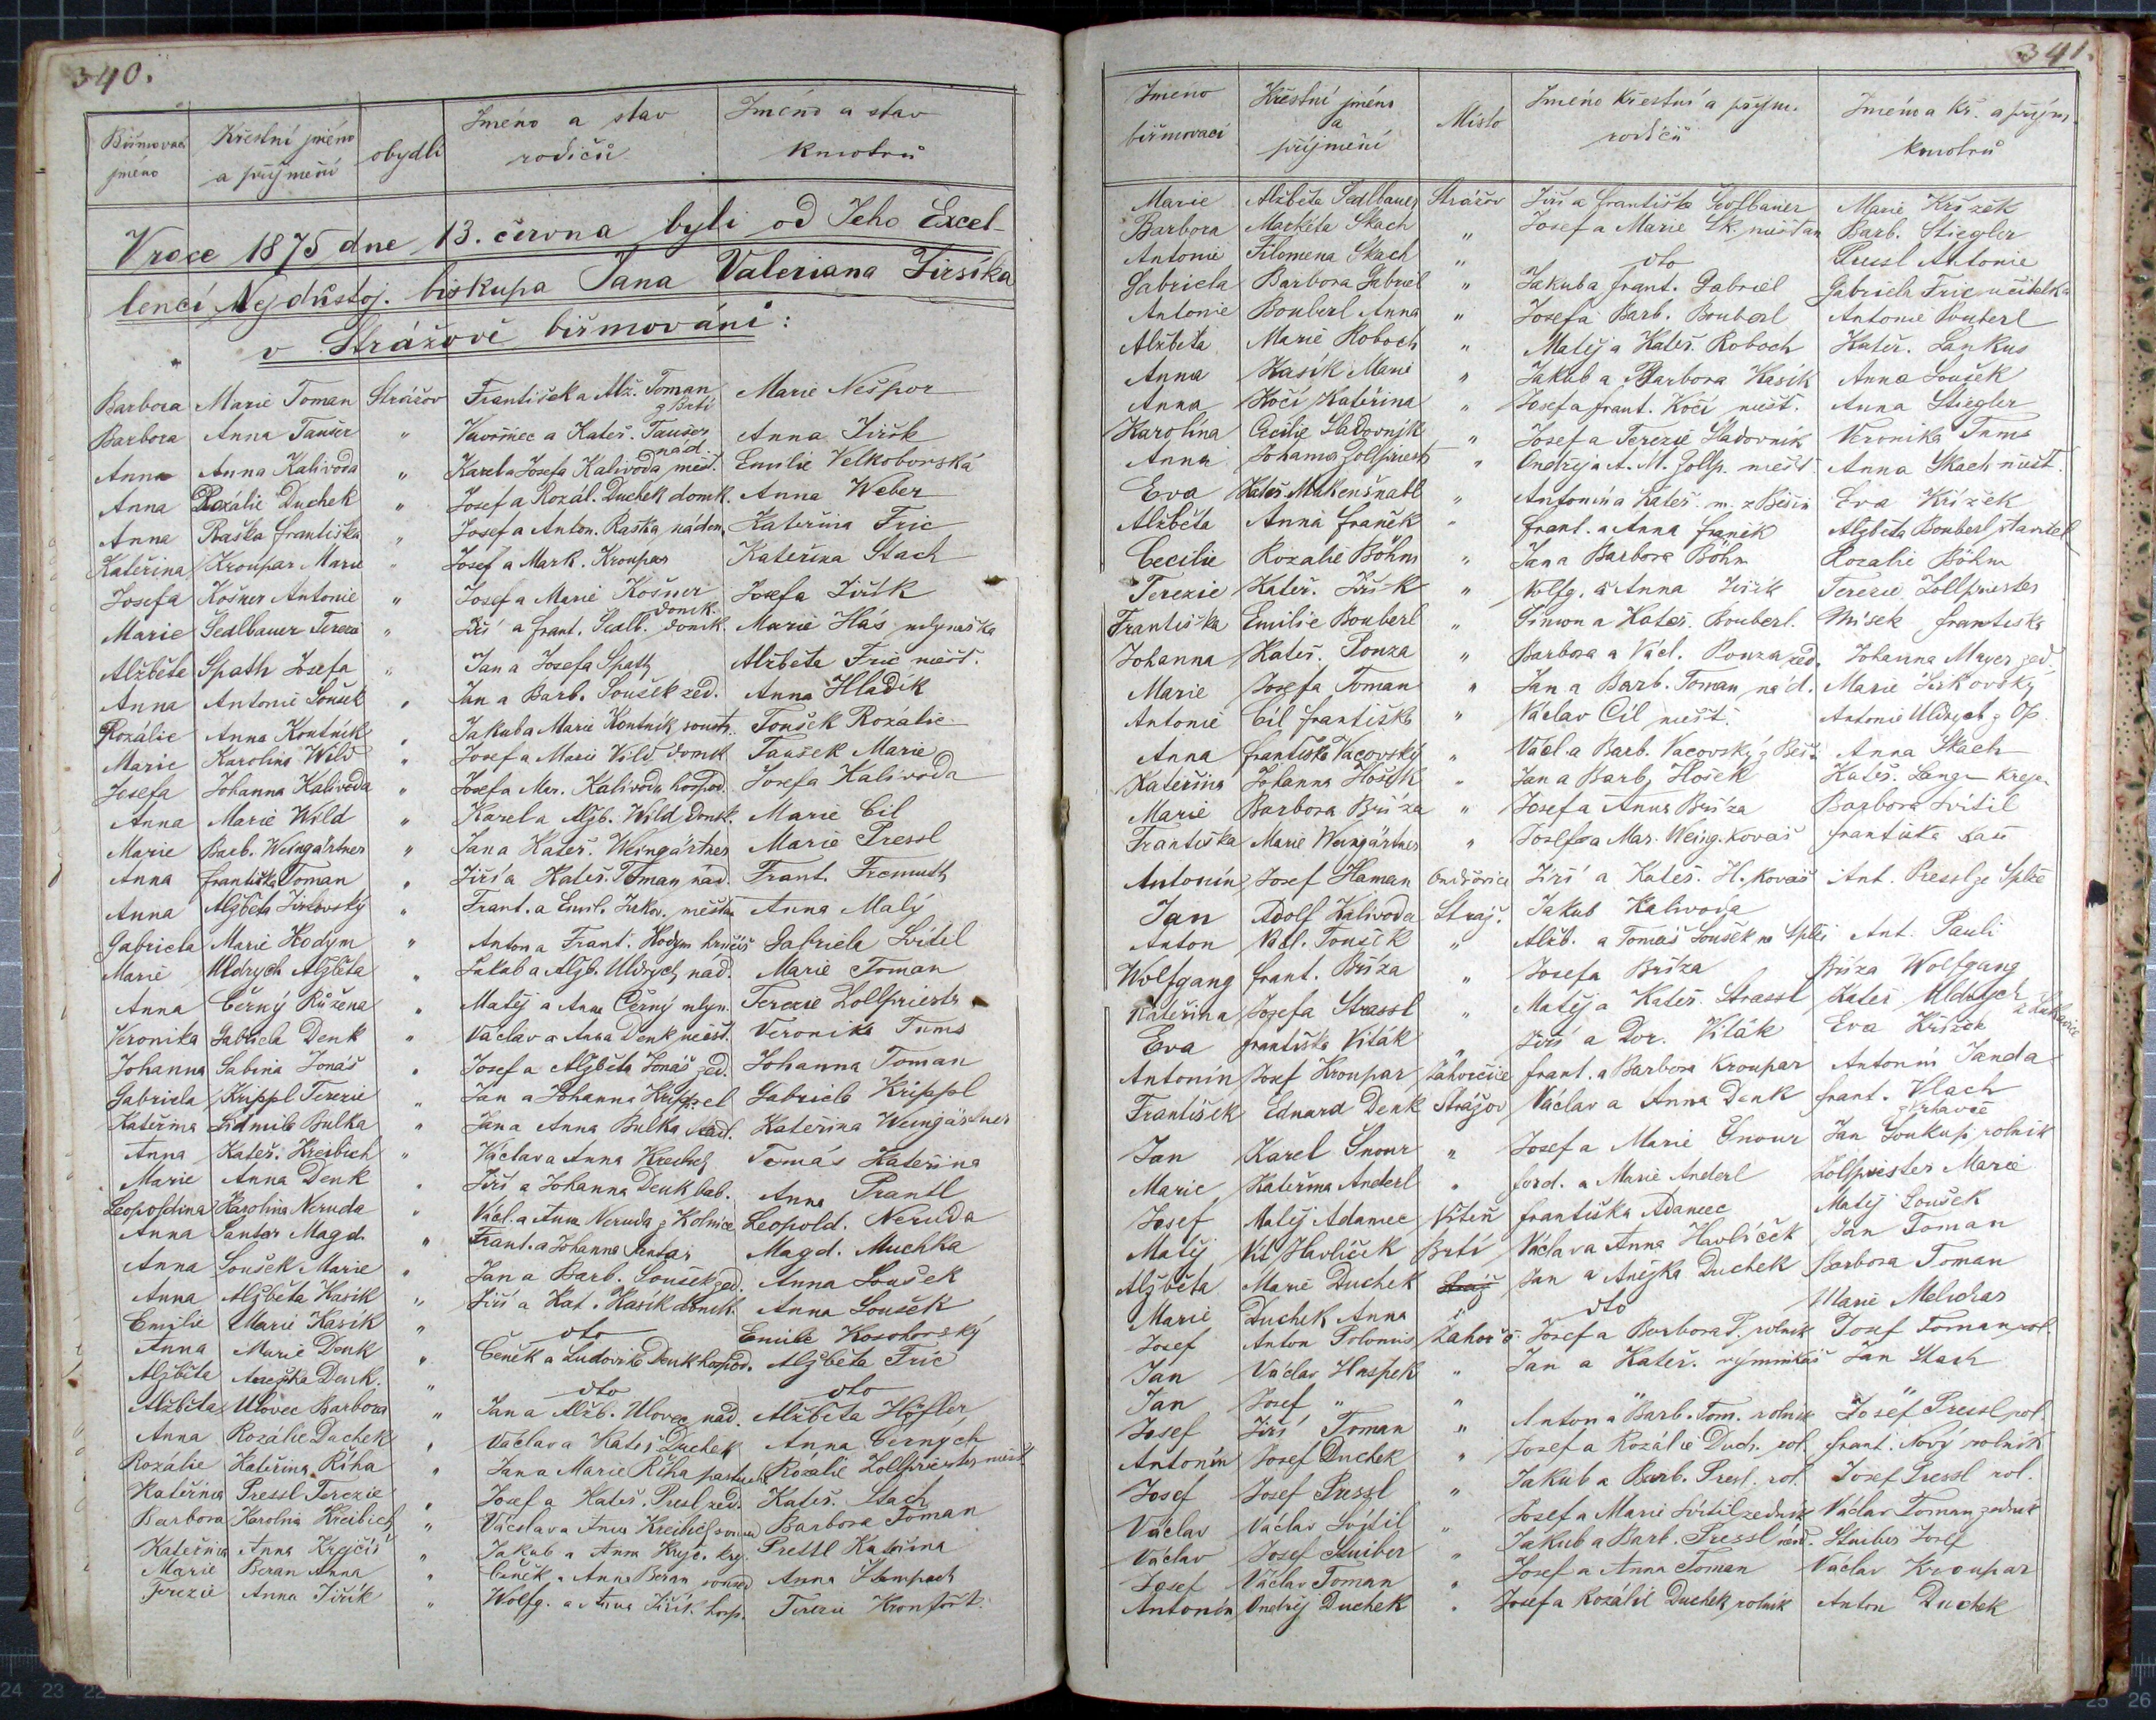 340.
Biřmovací jméno | Křestní jméno a příjmení | obydlí | Jméno a stav rodičů | Jméno a stav kmotrů
V roce 1875 dne 13. června byli od Jeho Excel-
lencí Nejdůstoj. biskupa Jana Valeriana Jirsíka
v Strážově biřmováni:
Barbora Marie Toman Strážov František a Alž. Toman z Brtí Marie Nešpor
Barbora Anna Tauser " Vavřinec a Kateř. Tauser nád. Anna Jiřík
Anna Anna Kalivoda " Karel a Josefa Kalivoda měšť. Emilie Velkoborská
Anna Rozálie Duchek " Josef a Rozál. Duchek domk. Anna Weber
Anna Raška Františka " Josef a Anton. Raška náden. Kateřina Fric
Kateřina Kroupar Marie " Josef a Mark. Kroupar Kateřina Stach
Josefa Košner Antonie " Josef a Marie Košner domk. Josefa Jiřík
Marie Sedlbauer Terezie " Jiří a Frant. Sedlb. domk. Marie Hás mlynařka
Alžběta Spath Josefa " Jan a Josefa Spath Alžběta Fric měšť.
Anna Antonie Loušek " Jan a Barb. Loušek zed. Anna Hladík
Rozálie Anna Koutník " Jakub a Marie Koutník Toušek Rozálie
Marie Karolina Wild " Josef a Marie Vild domk Toušek Marie
Josefa Johanna Kalivoda " Josef a Mar. Kalivoda hospod. Josefa Kalivoda
Anna Marie Wild " Karel a Alžb. Wild domk. Marie Cil
Marie Barb. Weingärtner " Jan a Kateř. Weingärtner Marie Pressl
Anna Františka Toman " Jiří a Kateř. Toman nád. Frant. Fremuth
Anna Alžběta Jirkovský " Frant. a Emil. Jirkov. měšťan Anna Malý
Gabriela Marie Hodym " Anton a Frant. Hodym hrnčíř Gabriela Svítil
Marie Uldrych Alžběta " Jakub a Alžb. Uldrych nád. Marie Toman
Anna Černý Růžena " Matěj a Anna Černý mlyn. Terezie Zollpriestr
Veronika Gabriela Denk " Václav a Anna Denk měšť. Veronika Tums
Johanna Sabina Jonáš " Josef a Alžběta Jonáš zed. Johanna Toman
Gabriela Krippl Terezie " Jan a Johanna Krippel Gabriela Krippl
Kateřina Lidmila Bulka " Jan a Anna Bulka Kateřina Weingärtner
Anna Kateř. Kreibich " Václav a Anna Kreibich Tomás Kateřina
Marie Anna Denk " Jiří a Johanna Denk bab. Anna Prantl
Leopoldina Karolina Neruda " Václ. a Anna Neruda z Kolince Leopold. Neruda
Anna Santar Magd. " Frant. a Johanna Santar Magd. Muchka
Anna Loušek Marie " Jan a Barb. Loušek zed. Anna Loušek
Anna Alžběta Kasík " Jiří a Kat. Kasík domk. Anna Loušek
Emilie Marie Kasík " dto Emilie Kosohorský
Anna Marie Denk " Čeněk a Ludovika Denk hospod. Alžběta Fric
Alžběta Anežka Denk. " dto dto
Alžběta Ulovec Barbora " Jan a Alžb. Ulovec nád. Alžběta Höfler
Anna Rozálie Duchek " Václav a Kateř. Duchek Anna Černých
Rozálie Kateřina Říha " Jan a Marie Říha pastuch Rozálie Zollpriester měšť
Kateřina Pressl Terezie " Josef a Kateř. Presl zed. Kateř. Stach
Barbora Karolina Kreibich " Václav a Anna Kreibich Barbora Toman
Kateřina Anna Krejčí " Jakub a Anna Krejč. krej. Pressl Kateřina
Marie Beran Anna " Čeněk a Anna Beran soused Anna Stumpach
Terezie Anna Jiřík " Wolfg. a Anna Jiřík hosp. Terezie Kronfořt.
341.
Jméno biřmovací | Křestní jméno a příjmení | Místo | Jméno Křestní a příjm. rodičů | Jméno a Kř. a příjm. kmotrů
Marie Alžběta Sedlbauer Strážov Jiří a Františka Marie Křížek
Barbora Markéta Skach " Josef a Marie Sk. měšťan Barb. Stiegler
Antonie Filomena Skach " dto Pressl Antonie
Gabriela Barbora Gabriel " Jakub a Frant. Gabriel Gabriela Fric učitelka
Antonie Bouberl Anna " Josef a Barb. Bouberl Antonie Bouberl
Alžběta Marie Roboch " Matěj a Kateř. Roboch Kateř. Lankus
Anna Kasík Marie " Jakub a Barbora Kasík Anna Loušek
Anna Kočí Kateřina " Josef a Frant. Kočí měšť. Anna Stiegler
Karolína Cecilie Sladovník " Josef a Terezie Sladovník Veronika Tums
Anna Johanna Zollpriest " Ondřej a A. M. Zollp. měšť Anna Skach měšť.
Eva Kateř. Makenšnabl " Antonín a Kateř. m. z Běšin Eva Křížek
Alžběta Anna Franěk " Frant. a Anna Franěk Alžběta Bouberl
Cecilie Rozalie Böhm " Jan a Barbora Böhm Rozalie Böhm
Terezie Kateř. Jiřík " Wolfg. a Anna Jiřík Terezie Zollpriester
Františka Emilie Bouberl " Šimon a Kateř. Bouberl. Mísek Františka
Johanna Kateř. Ponza " Barbora a Václ. Ponza zed. Johanna Mayer zed.
Marie Josefa Toman " Jan a Barb. Toman nád. Marie Jirkovský
Antonie Cil Františka " Václav Cíl měšť. Antonie Uldrych z Op
Anna Františka Vacovský " Václ. a Barb. Vacovský z Běš. Anna Skach
Kateřina Johanna Hošek " Jan a Barb. Hošek Kateř. Lang
Marie Barbora Bříza " Josef a Anna Bříza Barbora Svítil
Františka Marie Weingärtner " Josef a Mar. Weing. kovař Františka
Antonín Josef Haman Ondřovice Jiří a Kateř. H. kovař Ant. Pressl ze Splže
Jan Adolf Kalivoda Stráž. Jakub Kalivoda
Anton Václ. Toušek " Alžb. a Tomáš Loušek na Splži Ant. Pauli
Wolfgang Frant. Bříza " Josefa Bříza Bříza Wolfgang
Kateřina Josefa Strassl " Matěj a Kateř. Strassl Kateř Uldrych
Eva Františka Viták " Jiří a Dor. Viták Eva Křížek
Antonín Josef Kroupar Zahorčice Frant. a Barbora Kroupar Antonín Janda
František Eduard Denk Strážov Václav a Anna Denk Frant. Vlach
Jan Karel Snour " Josef a Marie Snour Jan Soukup rolník
Marie Kateřina Anderl " Ferd. a Marie Anderl Zollpriester Marie
Josef Matěj Adamec Viteň Františka Adamec Matěj Loušek
Matěj Vít Havlíček Brtí Václav a Anna Havlíček Jan Toman
Alžběta Marie Duchek Stráž Jan a Anežka Duchek Barbora Toman
Marie Duchek Anna " dto Marie Melichar
Josef Anton Polomis Zahorč. Josef a Barbora P. rolník Josef Toman rol.
Jan Václav Haspek " Jan a Kateř. výminkář Jan Stach
Jan Josef " " " "
Josef Jiří Toman " Anton a Barb. Tom. rolník Josef Pressl rol.
Antonín Josef Duchek " Josef a Rozálie Duch. rol. Frant. Nový rolník
Josef Josef Pressl " Jakub a Barb. Presl. rol. Josef Pressl rol.
Václav Václav Svítil " Josef a Marie Svítil zedník Václav Toman zedník
Václav Josef Stuiber " Jakub a Barb. Pressl nád. Stuiber Josef
Josef Václav Toman " Josef a Anna Toman Václav Kroupar
Antonín Ondřej Duchek " Josef a Rozálie Duchek rolník Anton Duchek